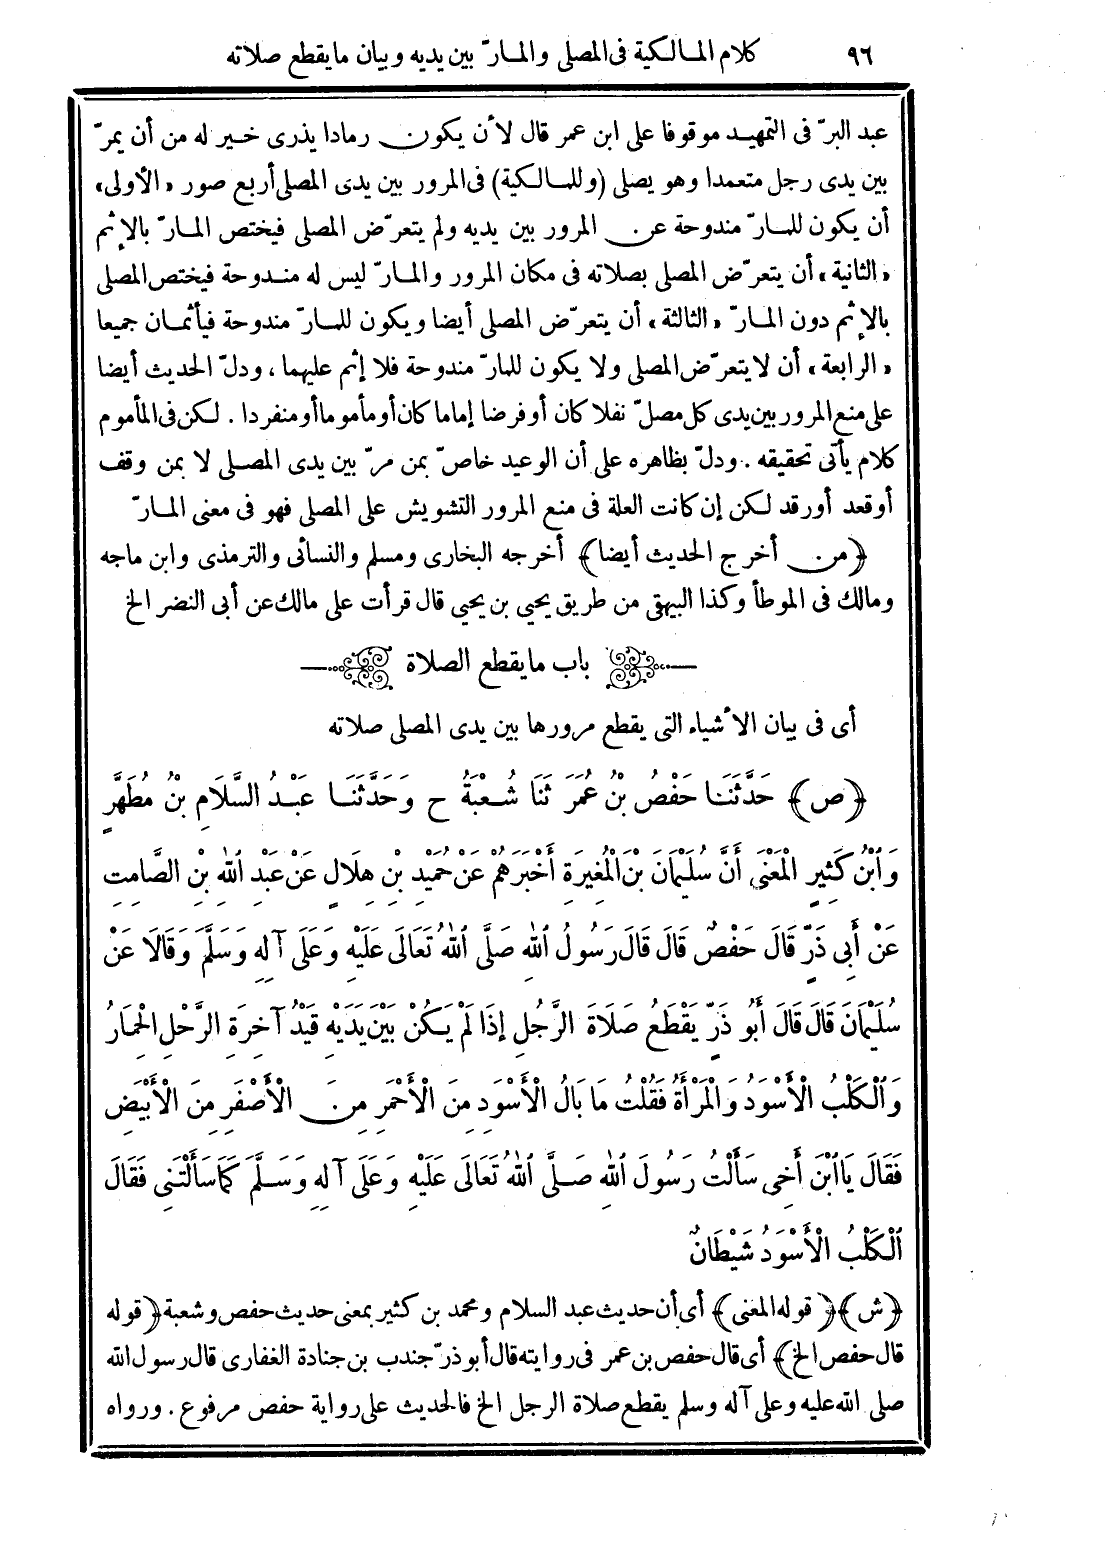 ٩٦ كلام المالكية فى المصلى والمارّ بين يديه وبيان ما يقطع صلاته
عبد البرّ فى التمهيد موقوفا على ابن عمر قال لأن يكون رمادا يذرى خير له من أن يمرّ
بين يدى رجل متعمدا وهو يصلى (وللمالكية) فى المرور بين يدى المصلى أربع صور «الأولى»
أن يكون للمارّ مندوحة عن المرور بين يديه ولم يتعرّض المصلى فيختص المارّ بالإثم
«الثانية» أن يتعرّض المصلى بصلاته فى مكان المرور والمارّ ليس له مندوحة فيختص المصلى
بالإثم دون المارّ «الثالثة» أن يتعرّض المصلى أيضا ويكون للمارّ مندوحة فيأثمان جميعا
«الرابعة» أن لا يتعرّض المصلى ولا يكون للمارّ مندوحة فلا إثم عليهما، ودلّ الحديث أيضا
على منع المرور بين يدى كل مصلّ نفلا كان أو فرضا إماما كان أو مأموما أو منفردا . لكن فى المأموم
كلام يأتى تحقيقه . ودلّ بظاهره على أن الوعيد خاصّ بمن مرّ بين يدى المصلى لا بمن وقف
أو قعد أو رقد لكن إن كانت العلة فى منع المرور التشويش على المصلى فهو فى معنى المارّ
﴿من أخرج الحديث أيضا﴾ أخرجه البخارى ومسلم والنسائى والترمذى وابن ماجه
ومالك فى الموطأ وكذا البيهقى من طريق يحيى بن يحيى قال قرأت على مالك عن أبى النضر الخ
باب ما يقطع الصلاة
أى فى بيان الأشياء التى يقطع مرورها بين يدى المصلى صلاته
﴿ص﴾ حَدَّثَنَا حَفْصُ بْنُ عُمَرَ ثَنَا شُعْبَةُ ح وَحَدَّثَنَا عَبْدُ السَّلَامِ بْنُ مُطَهَّرٍ
وَٱبْنُ كَثِيرٍ الْمَعْنَى أَنَّ سُلَيْمَانَ بْنَ الْمُغِيرَةِ أَخْبَرَهُمْ عَنْ حُمَيْدِ بْنِ هِلَالٍ عَنْ عَبْدِ ٱللهِ بْنِ الصَّامِتِ
عَنْ أَبِى ذَرٍّ قَالَ حَفْصٌ قَالَ قَالَ رَسُولُ ٱللهِ صَلَّى ٱللهُ تَعَالَى عَلَيْهِ وَعَلَى آلِهِ وَسَلَّمَ وَقَالَا عَنْ
سُلَيْمَانَ قَالَ قَالَ أَبُو ذَرٍّ يَقْطَعُ صَلَاةَ الرَّجُلِ إِذَا لَمْ يَكُنْ بَيْنَ يَدَيْهِ قَيْدُ آخِرَةِ الرَّحْلِ الْحِمَارُ
وَٱلْكَلْبُ الْأَسْوَدُ وَالْمَرْأَةُ فَقُلْتُ مَا بَالُ الْأَسْوَدِ مِنَ الْأَحْمَرِ مِنَ الْأَصْفَرِ مِنَ الْأَبْيَضِ
فَقَالَ يَا ٱبْنَ أَخِى سَأَلْتُ رَسُولَ ٱللهِ صَلَّى ٱللهُ تَعَالَى عَلَيْهِ وَعَلَى آلِهِ وَسَلَّمَ كَمَا سَأَلْتَنِى فَقَالَ
ٱلْكَلْبُ الْأَسْوَدُ شَيْطَانٌ
﴿ش﴾ ﴿قوله المعنى﴾ أى أن حديث عبد السلام ومحمد بن كثير بمعنى حديث حفص وشعبة ﴿قوله
قال حفص الخ﴾ أى قال حفص بن عمر فى روايته قال أبو ذرّ جندب بن جنادة الغفارى قال رسول الله
صلى الله عليه وعلى آله وسلم يقطع صلاة الرجل الخ فالحديث على رواية حفص مرفوع . ورواه